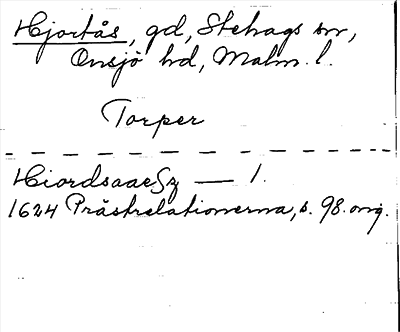 Hjortås, gd, Stehags sn,
Onsjö hd, Malm. l.
Torper
HiordsaaeSz — 1.
1624 Prästrelationerna, s. 98. orig.